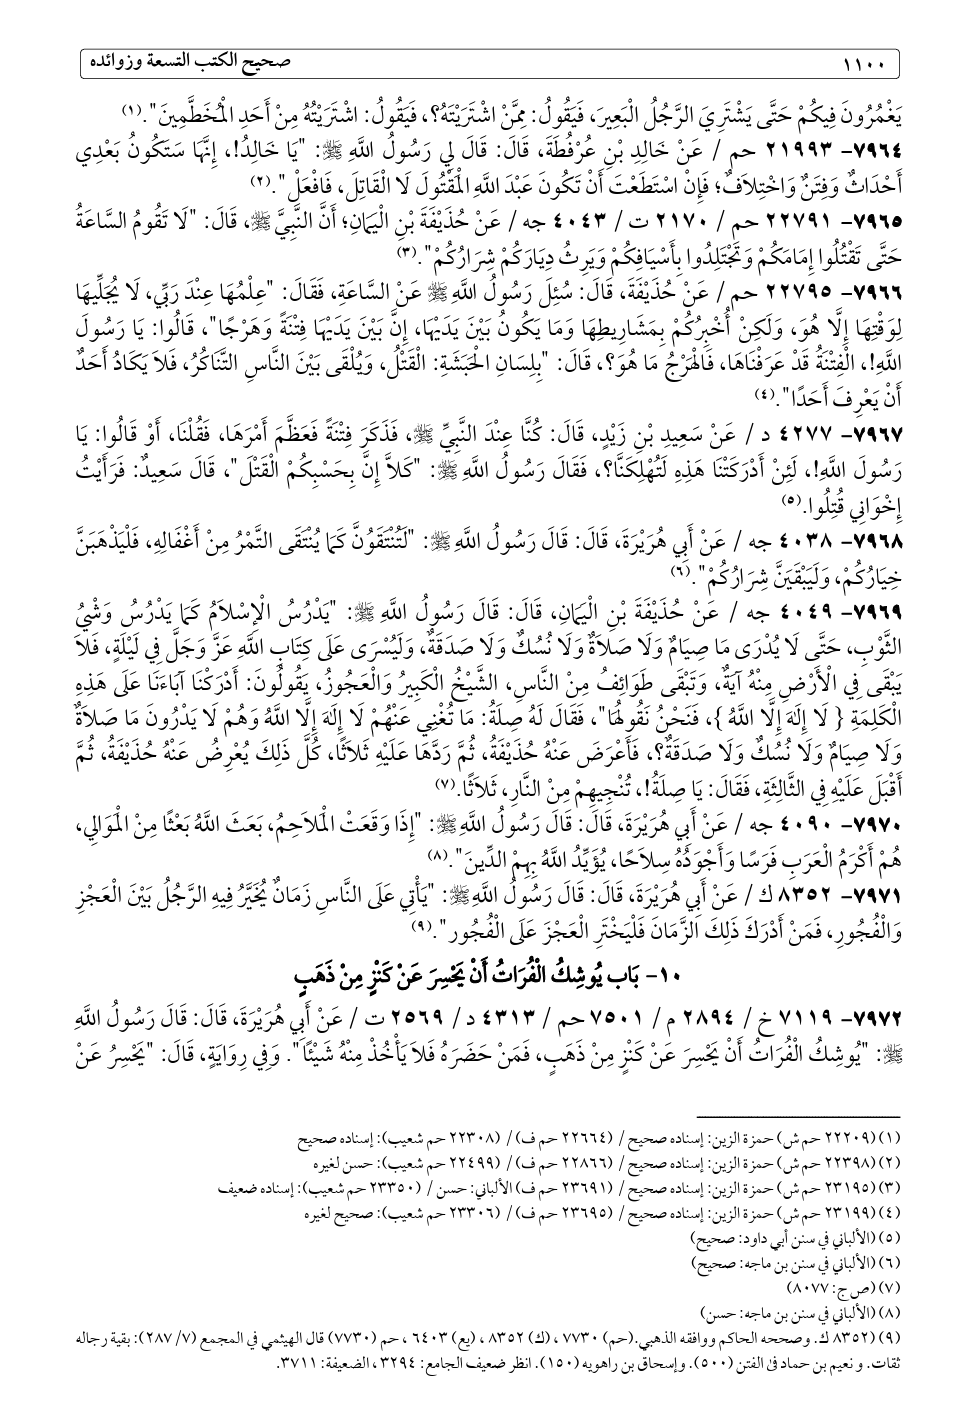 ١١٠٠ صحيح الكتب التسعة وزوائده
يَغْمُرُونَ فِيكُمْ حَتَّى يَشْتَرِيَ الرَّجُلُ الْبَعِيرَ، فَيَقُولُ: مِمَّنْ اشْتَرَيْتَهُ؟، فَيَقُولُ: اشْتَرَيْتُهُ مِنْ أَحَدِ الْمُخَطَّمِينَ". (١)
٧٩٦٤- ٢١٩٩٣ حم / عَنْ خَالِدِ بْنِ عُرْفُطَةَ، قَالَ: قَالَ لِي رَسُولُ اللَّهِ ﷺ: "يَا خَالِدُ!، إِنَّهَا سَتَكُونُ بَعْدِي
أَحْدَاثٌ وَفِتَنٌ وَاخْتِلَافٌ؛ فَإِنْ اسْتَطَعْتَ أَنْ تَكُونَ عَبْدَ اللَّهِ الْمَقْتُولَ لَا الْقَاتِلَ، فَافْعَلْ". (٢)
٧٩٦٥- ٢٢٧٩١ حم / ٢١٧٠ ت / ٤٠٤٣ جه / عَنْ حُذَيْفَةَ بْنِ الْيَمَانِ؛ أَنَّ النَّبِيَّ ﷺ، قَالَ: "لَا تَقُومُ السَّاعَةُ
حَتَّى تَقْتُلُوا إِمَامَكُمْ وَتَجْتَلِدُوا بِأَسْيَافِكُمْ وَيَرِثَ دِيَارَكُمْ شِرَارُكُمْ". (٣)
٧٩٦٦- ٢٢٧٩٥ حم / عَنْ حُذَيْفَةَ، قَالَ: سُئِلَ رَسُولُ اللَّهِ ﷺ عَنْ السَّاعَةِ، فَقَالَ: "عِلْمُهَا عِنْدَ رَبِّي، لَا يُجَلِّيهَا
لِوَقْتِهَا إِلَّا هُوَ، وَلَكِنْ أُخْبِرُكُمْ بِمَشَارِيطِهَا وَمَا يَكُونُ بَيْنَ يَدَيْهَا، إِنَّ بَيْنَ يَدَيْهَا فِتْنَةً وَهَرْجًا"، قَالُوا: يَا رَسُولَ
اللَّهِ!، الْفِتْنَةُ قَدْ عَرَفْنَاهَا، فَالْهَرْجُ مَا هُوَ؟، قَالَ: "بِلِسَانِ الْحَبَشَةِ: الْقَتْلُ، وَيُلْقَى بَيْنَ النَّاسِ التَّنَاكُرُ، فَلاَ يَكَادُ أَحَدٌ
أَنْ يَعْرِفَ أَحَدًا". (٤)
٧٩٦٧- ٤٢٧٧ د / عَنْ سَعِيدِ بْنِ زَيْدٍ، قَالَ: كُنَّا عِنْدَ النَّبِيِّ ﷺ، فَذَكَرَ فِتْنَةً فَعَظَّمَ أَمْرَهَا، فَقُلْنَا، أَوْ قَالُوا: يَا
رَسُولَ اللَّهِ!، لَئِنْ أَدْرَكَتْنَا هَذِهِ لَتُهْلِكَنَّا؟، فَقَالَ رَسُولُ اللَّهِ ﷺ: "كَلاَّ إِنَّ بِحَسْبِكُمْ الْقَتْلَ"، قَالَ سَعِيدٌ: فَرَأَيْتُ
إِخْوَانِي قُتِلُوا. (٥)
٧٩٦٨- ٤٠٣٨ جه / عَنْ أَبِي هُرَيْرَةَ، قَالَ: قَالَ رَسُولُ اللَّهِ ﷺ: "لَتُنْتَقَوُنَّ كَمَا يُنْتَقَى التَّمْرُ مِنْ أَغْفَالِهِ، فَلْيَذْهَبَنَّ
خِيَارُكُمْ، وَلَيَبْقَيَنَّ شِرَارُكُمْ". (٦)
٧٩٦٩- ٤٠٤٩ جه / عَنْ حُذَيْفَةَ بْنِ الْيَمَانِ، قَالَ: قَالَ رَسُولُ اللَّهِ ﷺ: "يَدْرُسُ الْإِسْلَامُ كَمَا يَدْرُسُ وَشْيُ
الثَّوْبِ، حَتَّى لَا يُدْرَى مَا صِيَامٌ وَلَا صَلَاةٌ وَلَا نُسُكٌ وَلَا صَدَقَةٌ، وَلَيُسْرَى عَلَى كِتَابِ اللَّهِ عَزَّ وَجَلَّ فِي لَيْلَةٍ، فَلاَ
يَبْقَى فِي الْأَرْضِ مِنْهُ آيَةٌ، وَتَبْقَى طَوَائِفُ مِنْ النَّاسِ، الشَّيْخُ الْكَبِيرُ وَالْعَجُوزُ، يَقُولُونَ: أَدْرَكْنَا آبَاءَنَا عَلَى هَذِهِ
الْكَلِمَةِ { لَا إِلَهَ إِلَّا اللَّهُ }، فَنَحْنُ نَقُولُهَا"، فَقَالَ لَهُ صِلَةُ: مَا تُغْنِي عَنْهُمْ لَا إِلَهَ إِلَّا اللَّهُ وَهُمْ لَا يَدْرُونَ مَا صَلَاةٌ
وَلَا صِيَامٌ وَلَا نُسُكٌ وَلَا صَدَقَةٌ؟، فَأَعْرَضَ عَنْهُ حُذَيْفَةُ، ثُمَّ رَدَّهَا عَلَيْهِ ثَلَاثًا، كُلَّ ذَلِكَ يُعْرِضُ عَنْهُ حُذَيْفَةُ، ثُمَّ
أَقْبَلَ عَلَيْهِ فِي الثَّالِثَةِ، فَقَالَ: يَا صِلَةُ!، تُنْجِيهِمْ مِنْ النَّارِ، ثَلَاثًا. (٧)
٧٩٧٠- ٤٠٩٠ جه / عَنْ أَبِي هُرَيْرَةَ، قَالَ: قَالَ رَسُولُ اللَّهِ ﷺ: "إِذَا وَقَعَتْ الْمَلَاحِمُ، بَعَثَ اللَّهُ بَعْثًا مِنْ الْمَوَالِي،
هُمْ أَكْرَمُ الْعَرَبِ فَرَسًا وَأَجْوَدُهُ سِلاَحًا، يُؤَيِّدُ اللَّهُ بِهِمْ الدِّينَ". (٨)
٧٩٧١- ٨٣٥٢ ك / عَنْ أَبِي هُرَيْرَةَ، قَالَ: قَالَ رَسُولُ اللَّهِ ﷺ: "يَأْتِي عَلَى النَّاسِ زَمَانٌ يُخَيَّرُ فِيهِ الرَّجُلُ بَيْنَ الْعَجْزِ
وَالْفُجُورِ، فَمَنْ أَدْرَكَ ذَلِكَ الزَّمَانَ فَلْيَخْتَرِ الْعَجْزَ عَلَى الْفُجُورِ". (٩)
١٠- بَاب يُوشِكُ الْفُرَاتُ أَنْ يَحْسِرَ عَنْ كَنْزٍ مِنْ ذَهَبٍ
٧٩٧٢- ٧١١٩ خ / ٢٨٩٤ م / ٧٥٠١ حم / ٤٣١٣ د / ٢٥٦٩ ت / عَنْ أَبِي هُرَيْرَةَ، قَالَ: قَالَ رَسُولُ اللَّهِ
ﷺ: "يُوشِكُ الْفُرَاتُ أَنْ يَحْسِرَ عَنْ كَنْزٍ مِنْ ذَهَبٍ، فَمَنْ حَضَرَهُ فَلاَ يَأْخُذْ مِنْهُ شَيْئًا". وَفِي رِوَايَةٍ، قَالَ: "يَحْسِرُ عَنْ
(١) (٢٢٢٠٩ حم ش) حمزة الزين: إسناده صحيح / (٢٢٦٦٤ حم ف) / (٢٢٣٠٨ حم شعيب): إسناده صحيح
(٢) (٢٢٣٩٨ حم ش) حمزة الزين: إسناده صحيح / (٢٢٨٦٦ حم ف) / (٢٢٤٩٩ حم شعيب): حسن لغيره
(٣) (٢٣١٩٥ حم ش) حمزة الزين: إسناده صحيح / (٢٣٦٩١ حم ف) الألباني: حسن / (٢٣٣٥٠ حم شعيب): إسناده ضعيف
(٤) (٢٣١٩٩ حم ش) حمزة الزين: إسناده صحيح / (٢٣٦٩٥ حم ف) / (٢٣٣٠٦ حم شعيب): صحيح لغيره
(٥) (الألباني في سنن أبي داود: صحيح)
(٦) (الألباني في سنن بن ماجه: صحيح)
(٧) (ص ج: ٨٠٧٧)
(٨) (الألباني في سنن بن ماجه: حسن)
(٩) (٨٣٥٢ ك. وصححه الحاكم ووافقه الذهبي.(حم) ٧٧٣٠ ، (ك) ٨٣٥٢ ، (يع) ٦٤٠٣ ، حم (٧٧٣٠) قال الهيثمي في المجمع (٧/ ٢٨٧): بقية رجاله
ثقات. و نعيم بن حماد فى الفتن (٥٠٠). وإسحاق بن راهويه (١٥٠). انظر ضعيف الجامع: ٣٢٩٤ ، الضعيفة: ٣٧١١.